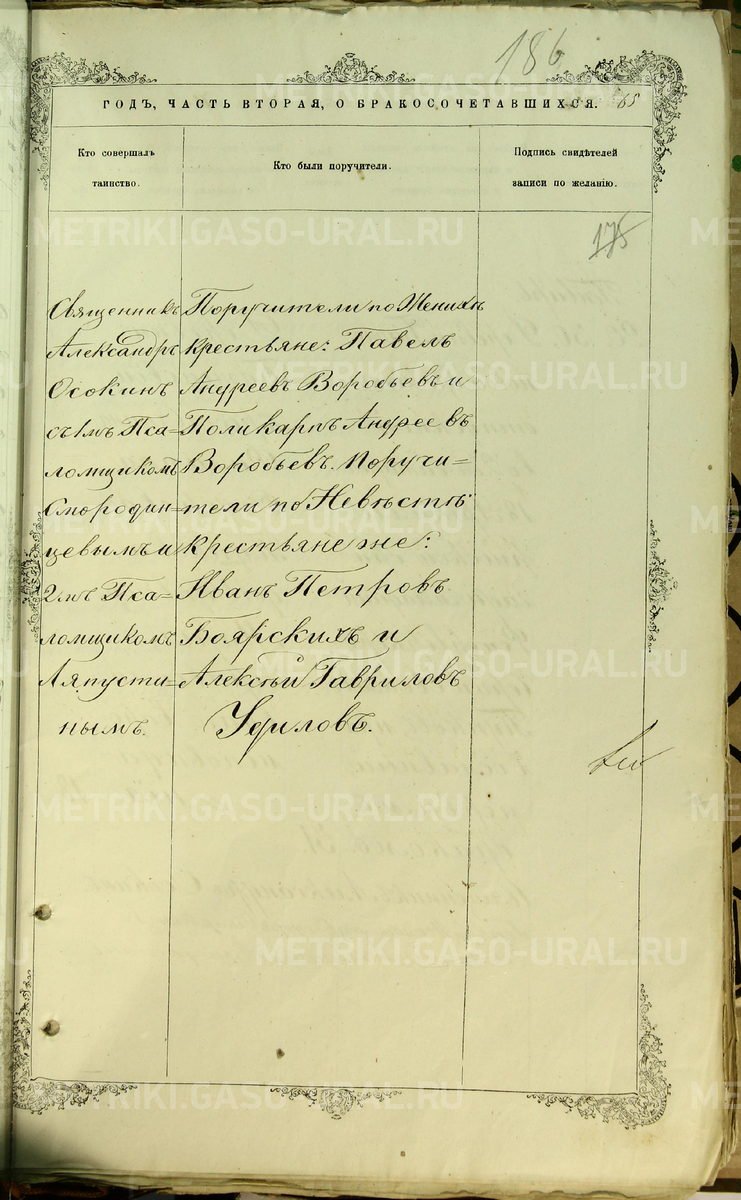 186
ГОДЪ, ЧАСТЬ ВТОРАЯ, О БРАКОСОЧЕТАВШИХСЯ. 65
Кто совершалъ
таинство.
Кто были поручители.
Подпись свидѣтелей
записи по желанію.
175
Священникъ
Александръ
Осокинъ
съ 1мъ Пса=
ломщикомъ
Смородин=
цевымъ и
2мъ Пса=
ломщикомъ
Ляпусти=
нымъ.
Поручители по Женихѣ
крестьяне: Павелъ
Андреевъ Воробьевъ и
Поликарпъ Андреевъ
Воробьевъ. Поручи=
тели по Невѣстѣ
крестьяне же:
Иванъ Петровъ
Боярскихъ и
Алексѣй Гавриловъ
Уфиловъ.
METRIKI.GASO-URAL.RU